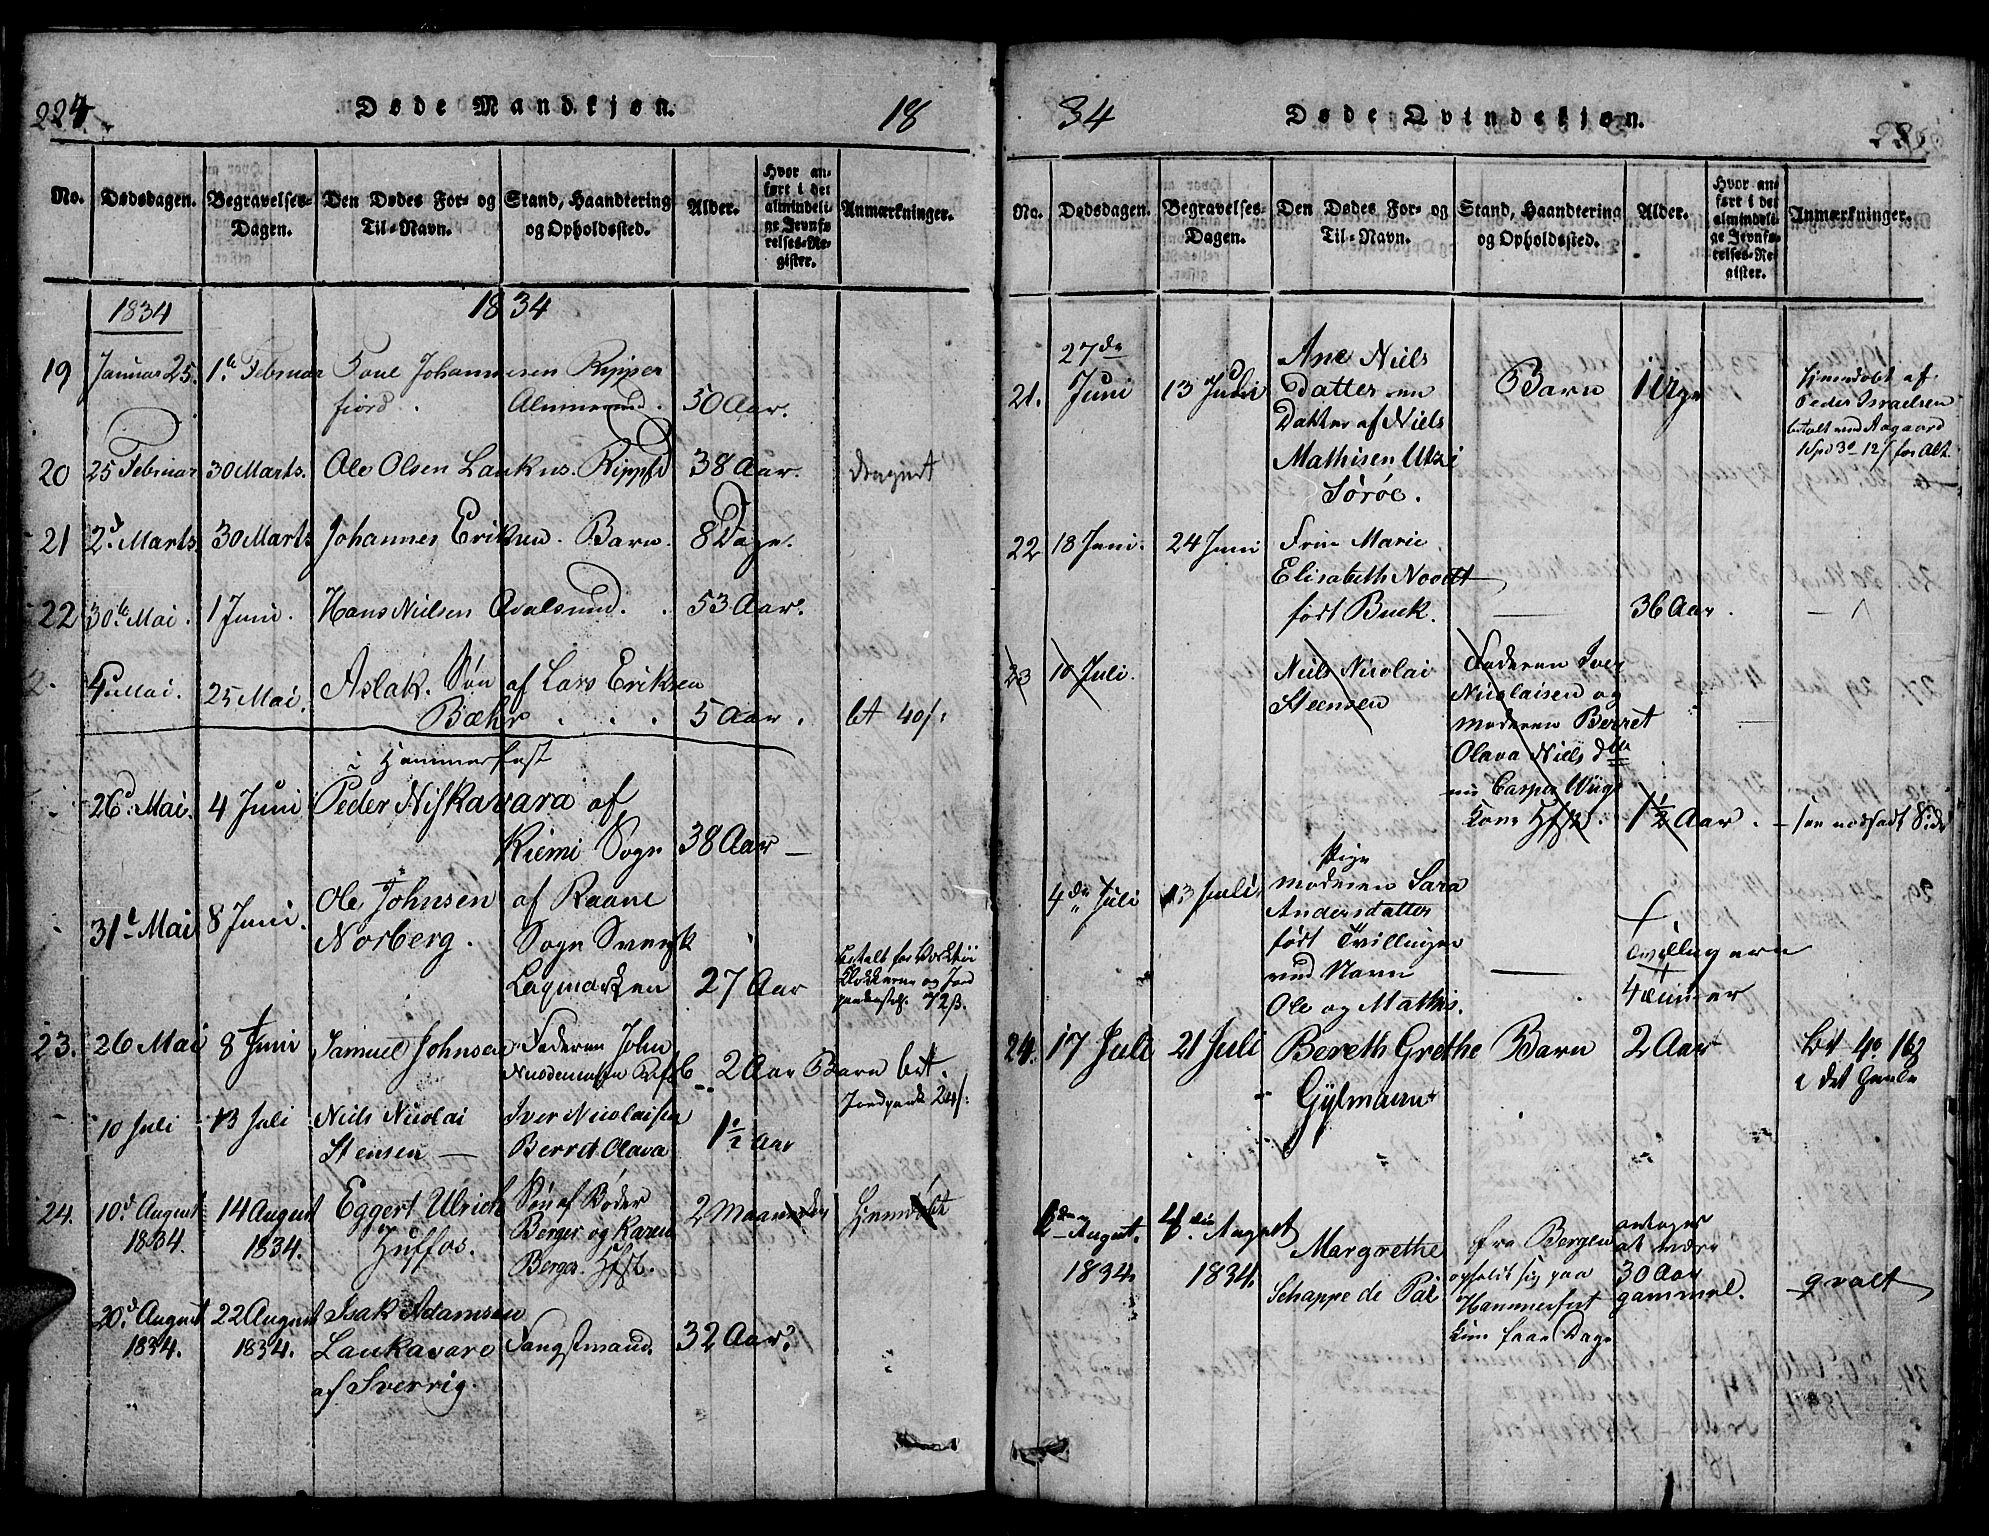 224.
Døde Mandkjøn.
18
No.
Dødsdagen.
Begravelses-
Dagen.
Den Dødes For- og
Til-Navn.
Stand, Haandtering
og Opholdssted.
Alder.
Hvor an-
ført i det
almindeli-
ge Jevnfø-
relses-Re-
gister.
Anmærkninger.
1834
1834
19 Januar 25. 1te Februar Povel Johannesen Ripper
fiord. Almuemand. 50 Aar.
20 25 Februar 30 Marts. Ole Olsen Laukus. Rippfd 38 Aar.
21 2d Marts 30 Marts Johannes Eriksen. Barn. 8 Dage.
22 30te Mai. 1 Juni. Hans Nielsen Qvalsund. 53 Aar.
4 Mai. 25 Mai. Aslak. Søn af Lars Eriksen
Bæhr . . . 5 Aar. bt 40/:
i Hammerfest
26d Mai. 4 Juni Peder Niskavara af
Kiemi Sogn 38 Aar —
31t Mai 8 Juni. Ole Johnsen af Raane
Norberg. Sogn Svensk
Lapmarken 27 Aar
betalt for
Klokkerne og Jord
72 ß.
23. 26 Mai 8 Juni Samuel Johnsen Faderen John
2 Aar Barn bet.
Jordpenk 24/:
10 Juli 13 Juli Niels Nicolai Iver Nicolaisen
Stensen — Berret Olava 1½ Aar
24. 10d August 14 August Eggert Ulrich Søn af Bøder
1834. 1834. Huffos. Berger og Karen
Berger. Hfst. 2 Maaneder Hiemdøbt
20d August 22 August Isak Adamsen
1834. 1834. Laukavara Fangstmand. 32 Aar.
af Sverrig.
34
Døde Qvindekjøn.
No.
Dødsdagen.
Begravelses-
Dagen.
Den Dødes For- og
Til-Navn.
Stand, Haandtering
og Opholdssted.
Alder.
Hvor an-
ført i det
almindeli-
ge Jevnfø-
relses-Re-
gister.
Anmærkninger.
21. 27de Juni 13 Juli Ane Niels
Datter en Barn 1 Uge
Datter af Niels
Mathisen Utsi
Sørøe.
hiemdøbt af
Peder Israelsen
betalt ved Aagaard
1 Spd 3 12/ for Alt.
22 18 Juni. 24 Juni Frue Marie
Elisabeth Noodt
født Buck. — 36 Aar —
23 10 Juli. Niels Nicolai Faderen Iver
Steensen Nicolaisen og
moderen Berret
Olava Niels dtr
nu Casper Wigs
Kone Hfst. 1½ Aar. — see modsadt Side
4de Juli 13 Juli. Pige
moderen Sara
Andersdatter
født Tvillinger
ved Navn —
Ole og Mathis.
tvillingerne
4 timer
24. 17 Juli 21 Juli Bereth Grethe Barn 2 Aar bet
Gylmann i det Heele
2den August. 4de August
1834. 1834. Margrethe
Schappe de Pal
fra Bergen
opholdt sig paa
Hammerfest
kun faae Dage
antages
at være
30 Aar
gammel. qvalt